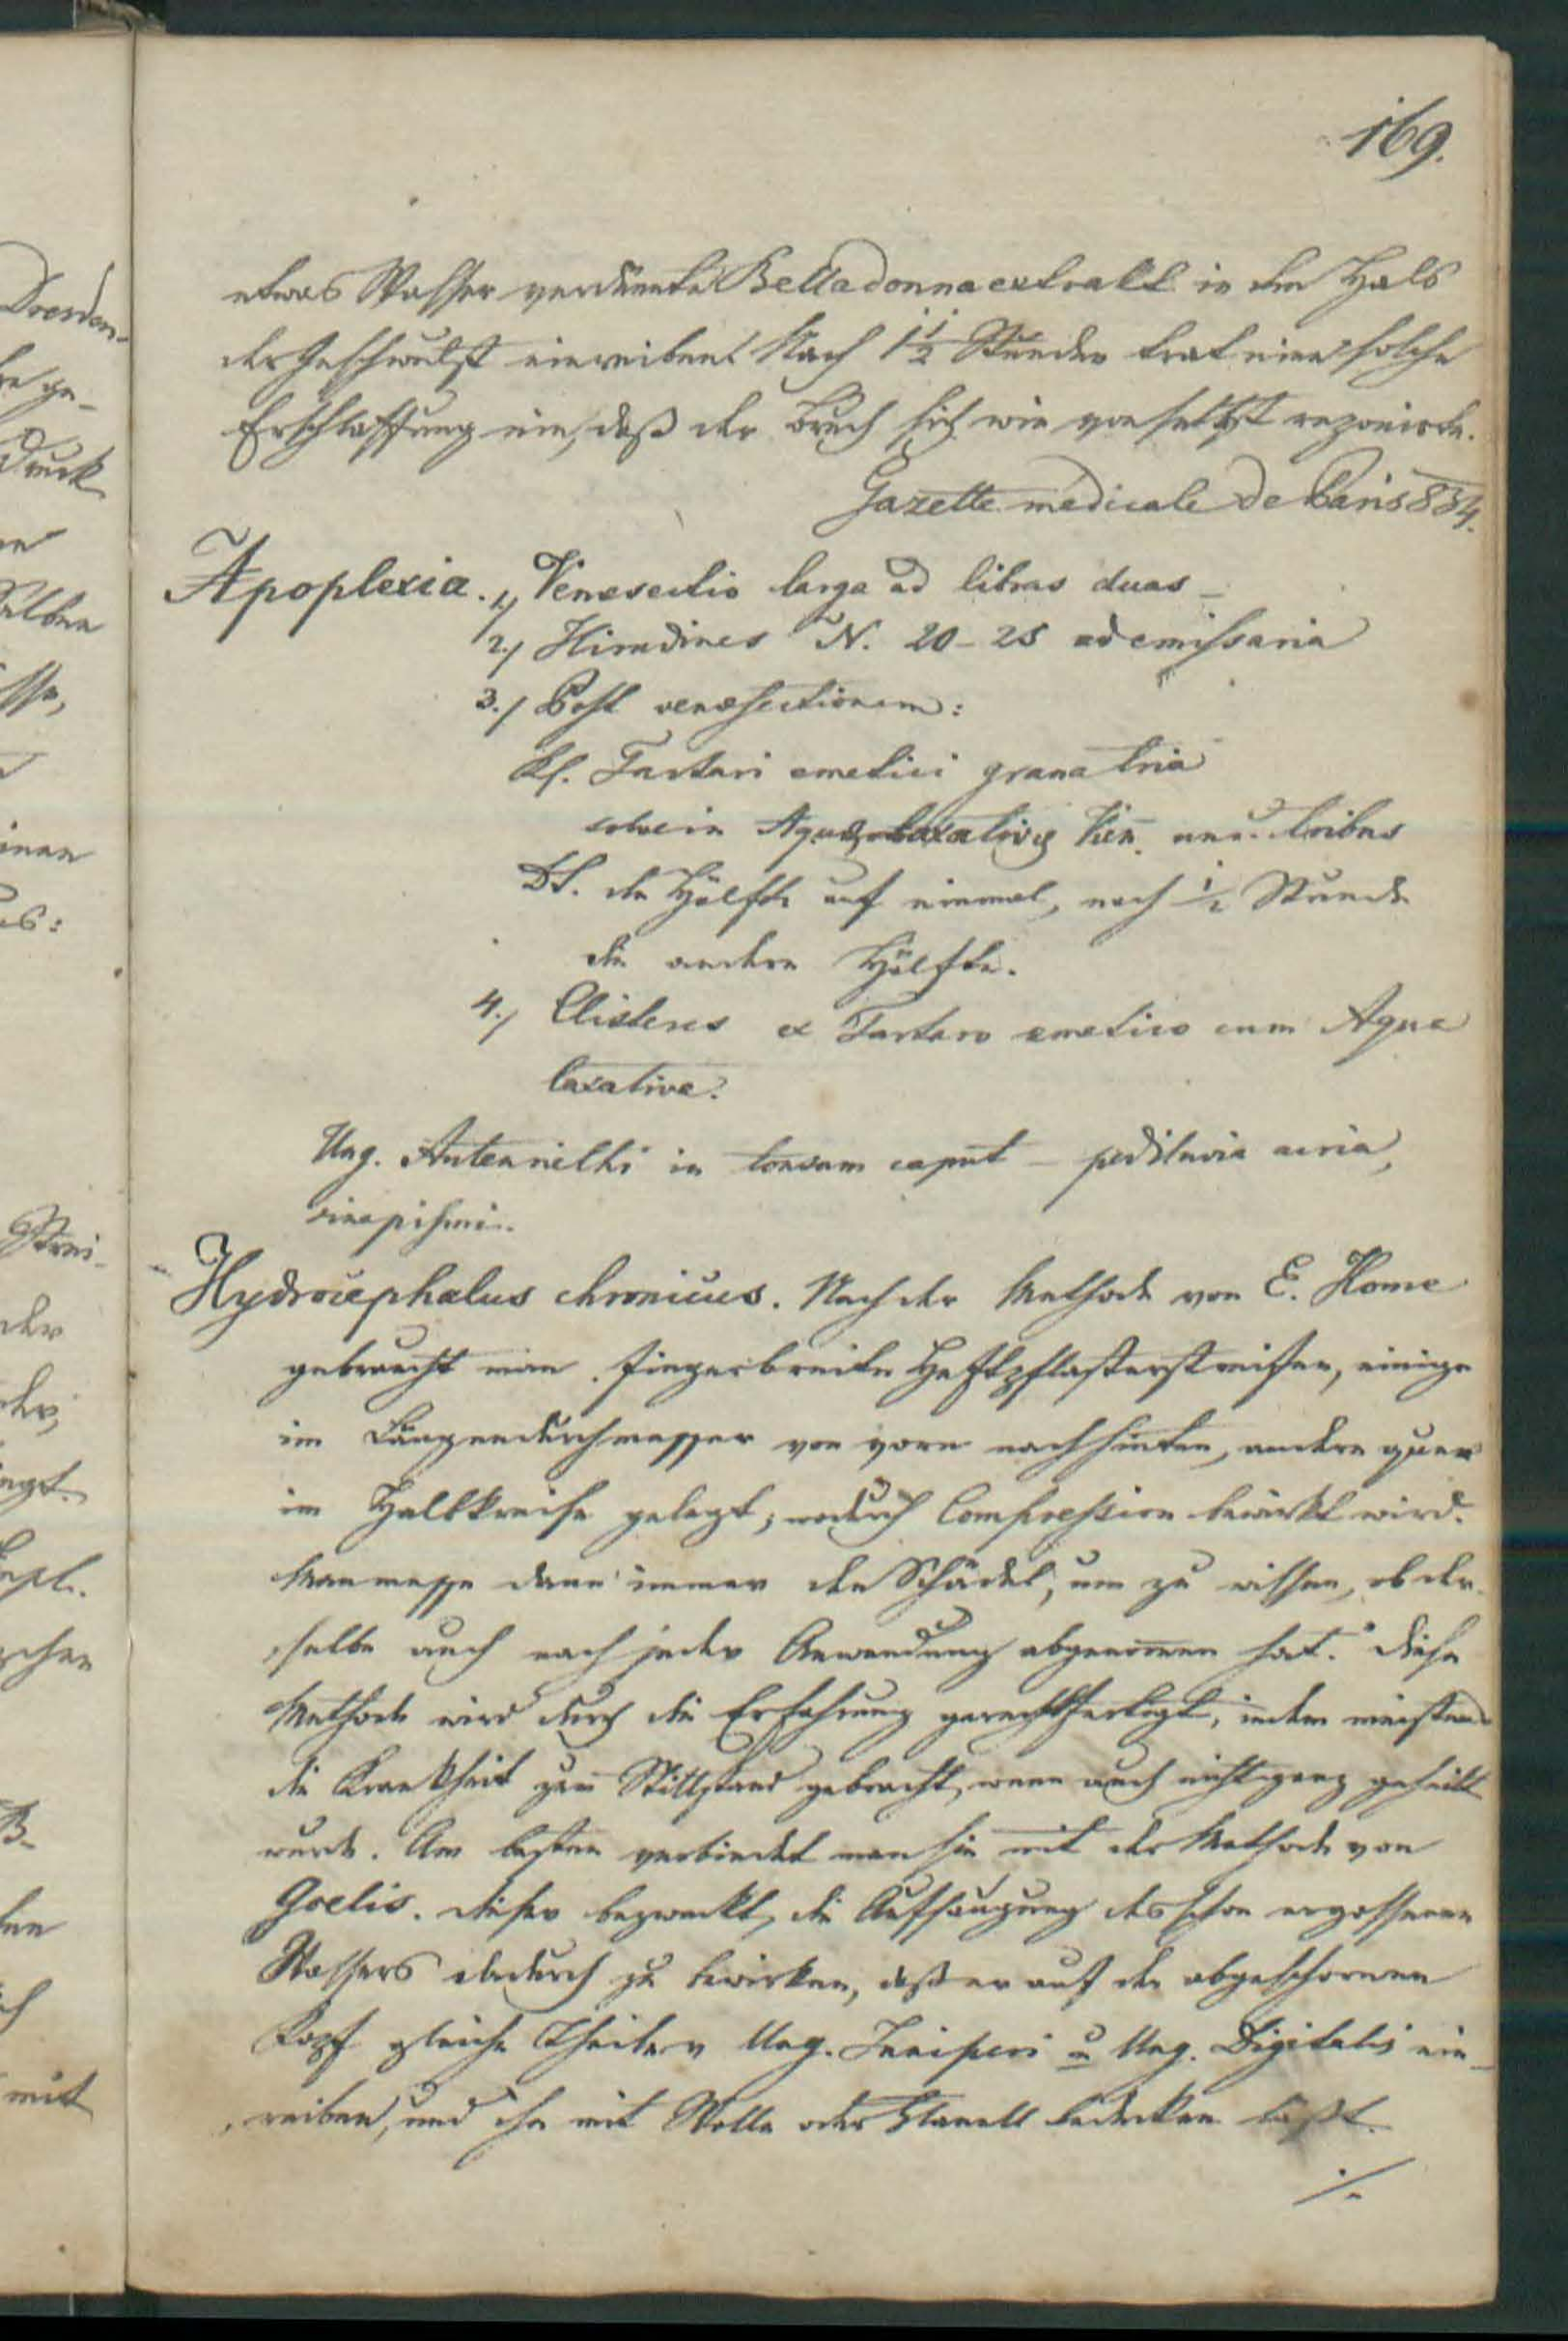 169.
etwas Wasser verdünnte Belladonnaextrakt in den Hals
der Geschwulst einreiben. Nach 1 1/2 Stunden trat eine solche
Erschlaffung ein, daß der Bruch sich wie von selbst reponirte.
Gazette medicale de Paris 834.
Apoplexia. 1.) Venesectio larga ad libras duas –
2.) Hirudines N. 20–25 ad emissaria
3.) Post venesectionem:
Rf. Tartari emetici grana tria
solve in Aquae laxativae Vien. unc. tribus
DS. die Hälfte auf einmal, nach 1/2 Stunde
die andere Hälfte.
4.) Clisteres ex Tartaro emetico cum Aqua
laxativa.
Ung. Autenriethi in tonsum caput – pediluvia acria,
sinapismi.
Hydrocephalus chronicus. Nach der Methode von E. Home
gebraucht man fingerbreite Heftpflasterstreifen, einige
im Längendurchmesser von vorn nach hinten, andere quer
im Halbkreise gelegt; wodurch Compression bewirkt wird.
Man messe dann immer den Schädel, um zu wissen, ob der-
selbe auch nach jeder Anwendung abgenommen hat. Diese
Methode wird durch die Erfahrung gerechtfertigt, indem meistens
die Krankheit zum Stillstand gebracht, wenn auch nicht ganz geheilt
wurde. Am besten verbindet man sie mit der Methode von
Goelis. Dieser bezweckt, die Aufsaugung des schon ergossenen
Wassers dadurch zu bewirken, daß er auf den abgeschornen
Kopf gleiche Theile v Ung. Juniperi u Ung. Digitalis ein-
reiben, und ihn mit Wolle oder Flanell bedecken läßt.
./.
Dresden-
druck
inen
mit